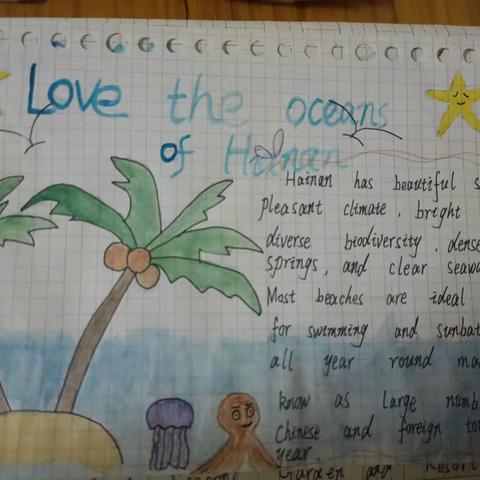 Love the oceans
of Hainan
Hainan has beautiful
pleasant climate, bright
diverse biodiversity, dense
springs, and clear
Most beaches are ideal
for swimming and
all year round
know as Large
Chinese and foreign
year.
Garden and Resort